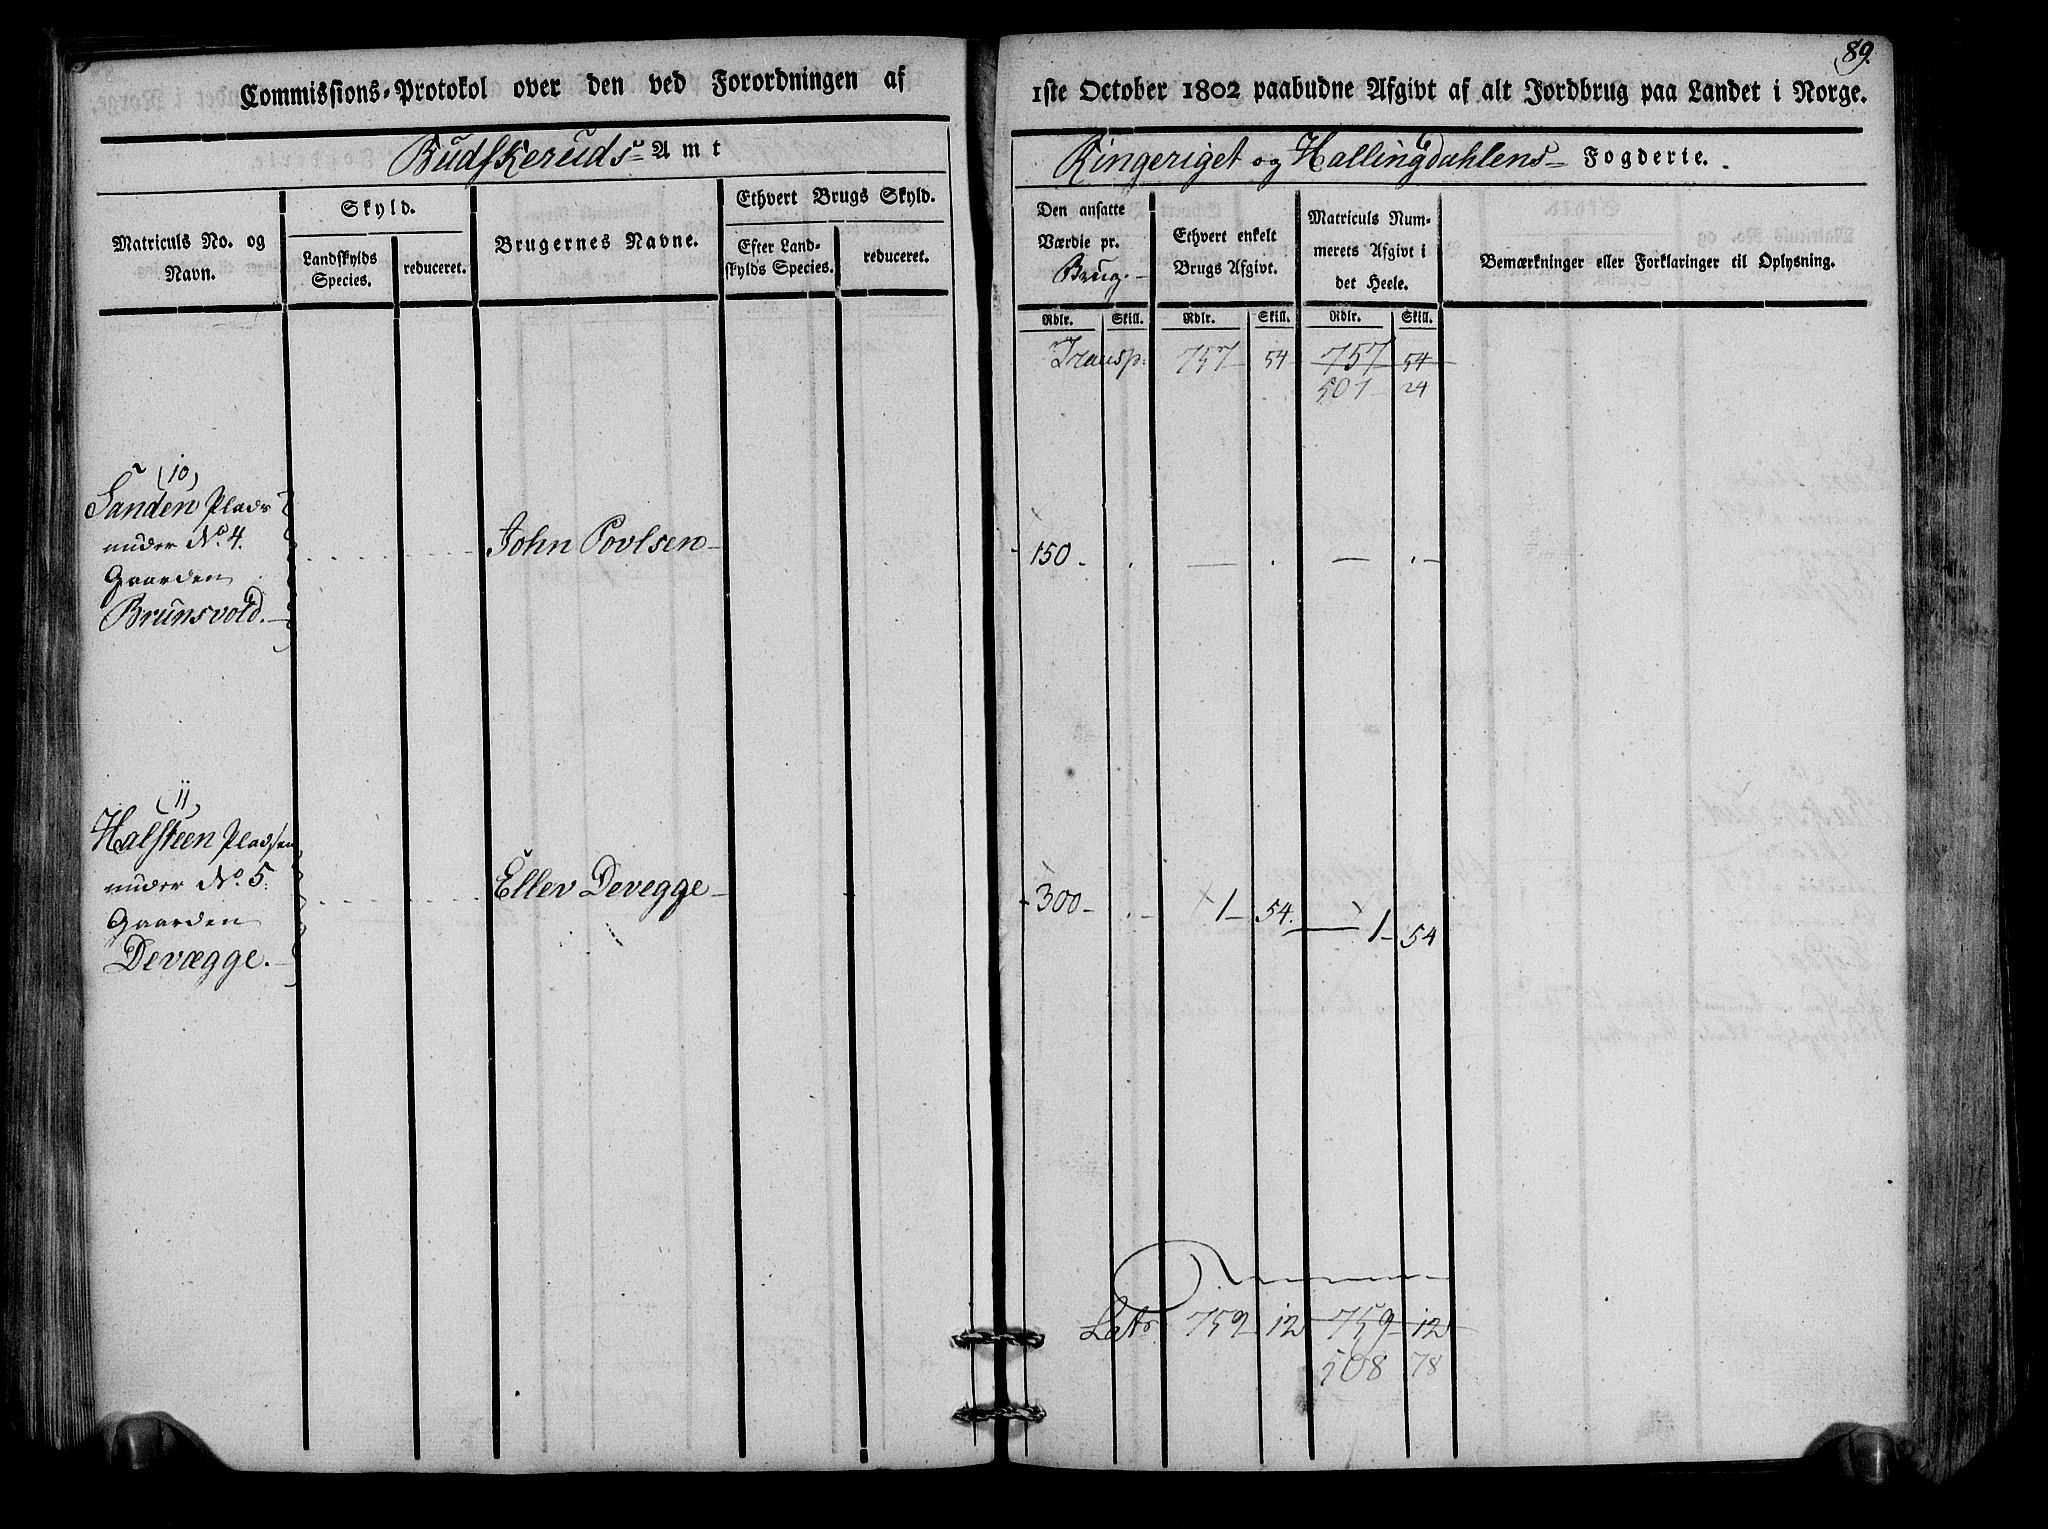 89.
Commissions-Protokol over den ved Forordningen af
1ste October 1802 paabudne Afgivt af alt Jordbrug paa Landet i Norge.
Budskeruds Amt
Ringeriget og Hallingdahlens Fogderie.
Matriculs No. og Navn.
Skyld.
Landskylds Species.
reduceret.
Brugernes Navne.
Ethvert Brugs Skyld.
Efter Landskylds Species.
reduceret.
Den ansatte Værdie pr. Brug.
Ethvert enkelt Brugs Afgivt.
Matriculs Nummerets Afgivt i det Heele.
Bemærkninger eller Forklaringer til Oplysning.
Rdlr. Skill. Rdlr. Skill. Rdlr. Skill.
Transp: 757 54 757 54
501 24
(10)
Sanden Plads
under No. 4.
Gaarden
Brunsvold.
John Povlsen
150 . . — . — . —
(11)
Halsteen Pladsen
under No. 5.
Gaarden
Devægge.
Ellev Devegge
300 — . — 1 — 54. 1 — 54
Latr. 759 12 759 12
508 78